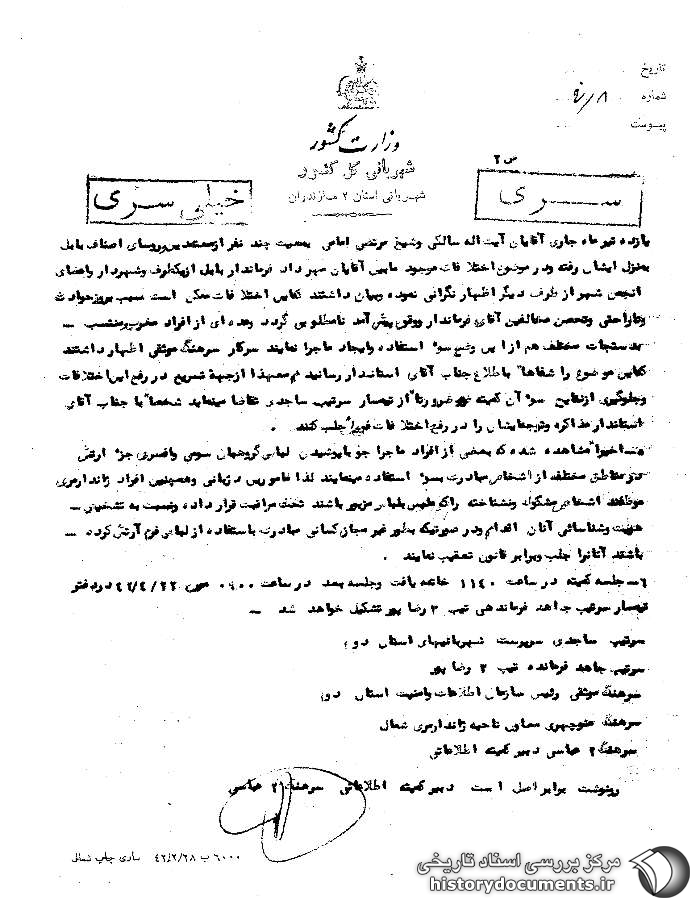 تاریخ
شماره ۹/۸
پیوست
وزارت کشور
شهربانی کل کشور
شهربانی استان ۲ مازندران
ص ۲
سری
خیلی سری
یازده تیر ماه جاری آقایان آیت اله سالکی و شیخ مرتضی امامی بمعیت چند نفر از معتمدین و روسای اصناف بابل
بمنزل ایشان رفته و در موضوع اختلافات موجود مابین آقایان مهرداد فرماندار بابل از یکطرف و شهردار و اعضای
انجمن شهر از طرف دیگر اظهار نگرانی نموده و بیان داشتند که این اختلافات ممکن است سبب بروز حوادث
و ناراحتی و تحصن مخالفین آقای فرماندار و وقوع پیش آمد نامطلوبی گردد و عده ای از افراد مغرب و منتسب
بدستجات مختلف هم از این وضع سوء استفاده و ایجاد ماجرا نمایند سرکار سرهنگ موثقی اظهار داشتند
که این موضوع را شفاها" باطلاع جناب آقای استاندار رسانیده معهذا از جهة تسریع در رفع این اختلافات
و جلوگیری از نتایج سوء آن کمیته نیز ضرورتا" از تیمسار سرتیپ ساجدی تقاضا مینماید شخصا" با جناب آقای
استاندار مذاکره و توجه ایشان را در رفع اختلافات فورا" جلب کنند .
اخیرا" مشاهده شده که بعضی از افراد ماجرا جو با پوشیدن لباس گروهبان سومی و افسری جزء ارتش
در مناطق مختلف از اشخاص مبادرت بسوء استفاده مینمایند لذا مامورین دژبانی و همچنین افراد ژاندارمری
موظفند اشخاص مشکوک و نشناخته را که ملبس بلباس مزبور باشند تحت مراقبت قرار داده و نسبت به تشخیص
هویت و شناسائی آنان اقدام و در صورتیکه بطور غیر مجاز کسانی مبادرت با استفاده از لباس فرم آرتش کرده
باشند آنانرا جلب و برابر قانون تعقیب نمایند .
۶ـ جلسه کمیته در ساعت ۱۱۴۰ خاتمه یافت و جلسه بعد در ساعت ۰۹۰۰ ۴۲/۴/۲۲ در دفتر
تیمسار سرتیپ جاهد فرماندهی تیپ ۲ رضا پور تشکیل خواهد شد
سرتیپ ساجدی سرپرست شهربانیهای استان دوم
سرتیپ جاهد فرمانده تیپ ۲ رضا پور
سرهنگ موثقی رئیس سازمان اطلاعات و امنیت استان دوم
سرهنگ منوچهری معاون ناحیه ژاندارمری شمال
سرهنگ ۲ عباسی دبیر کمیته اطلاعاتی
رونوشت برابر اصل است دبیر کمیته اطلاعاتی سرهنگ ۲ عباسی
۶۰۰۰ ب ۴۲/۲/۲۸ ساری چاپ شمال
مرکز بررسی اسناد تاریخی
historydocuments.ir